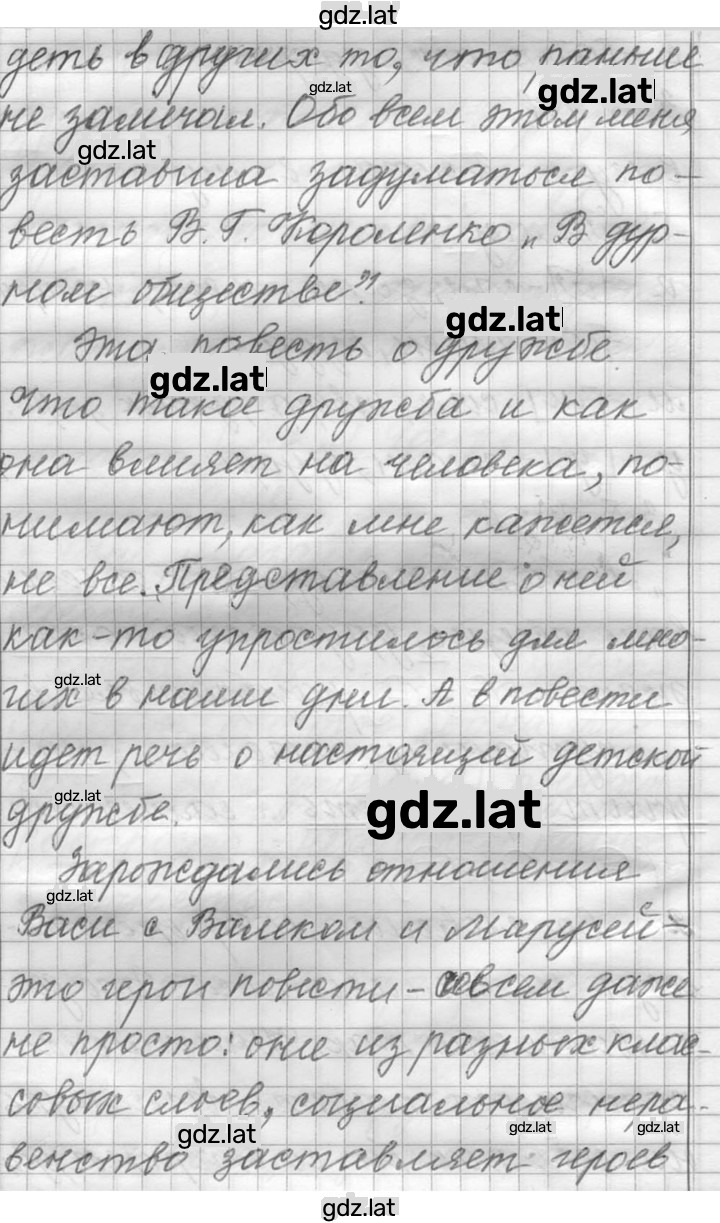 gdz.lat
деть в других то, что раньше
gdz.lat
gdz.lat
не замечал. Обо всем этом меня
gdz.lat
заставила задуматься по-
весть В. Г. Короленко „В дур-
ном обществе".
gdz.lat
Эта повесть о дружбе.
gdz.lat
Что такое дружба и как
она влияет на человека, по-
нимают, как мне кажется,
не все. Представление о ней
как-то упростилось для мно-
gdz.lat
гих в наши дни. А в повести
идет речь о настоящей детской
gdz.lat
gdz.lat
дружбе.
Зарождались отношения
gdz.lat
Васи с Валеком и Марусей -
это герои повести - совсем даже
не просто: они из разных клас-
совых слоев, социальное нера-
gdz.lat
gdz.lat
gdz.lat
венство заставляет героев
gdz.lat